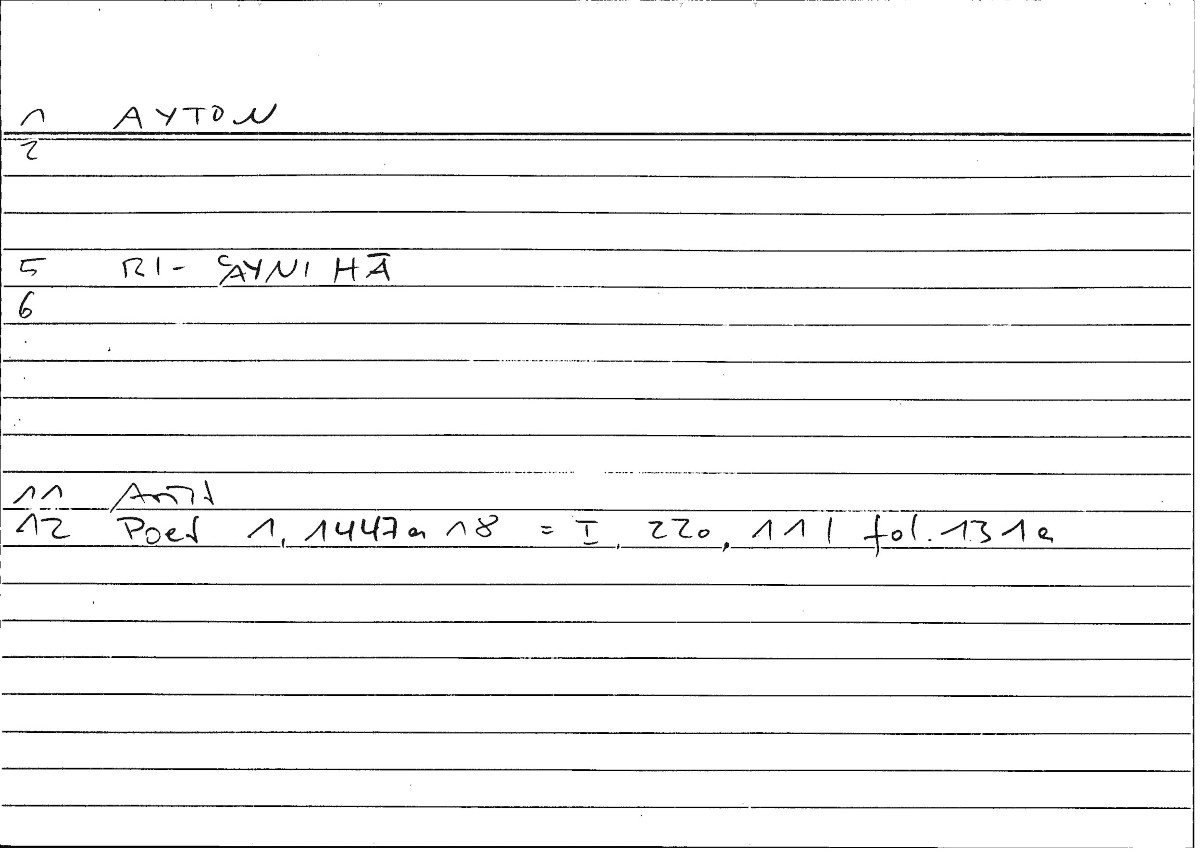 1 AYTON
2
5 BI- ʿAYNI HĀ
6
11 Arist
12 Poet 1, 1447a 18 = I, 220, 11 / fol. 131a